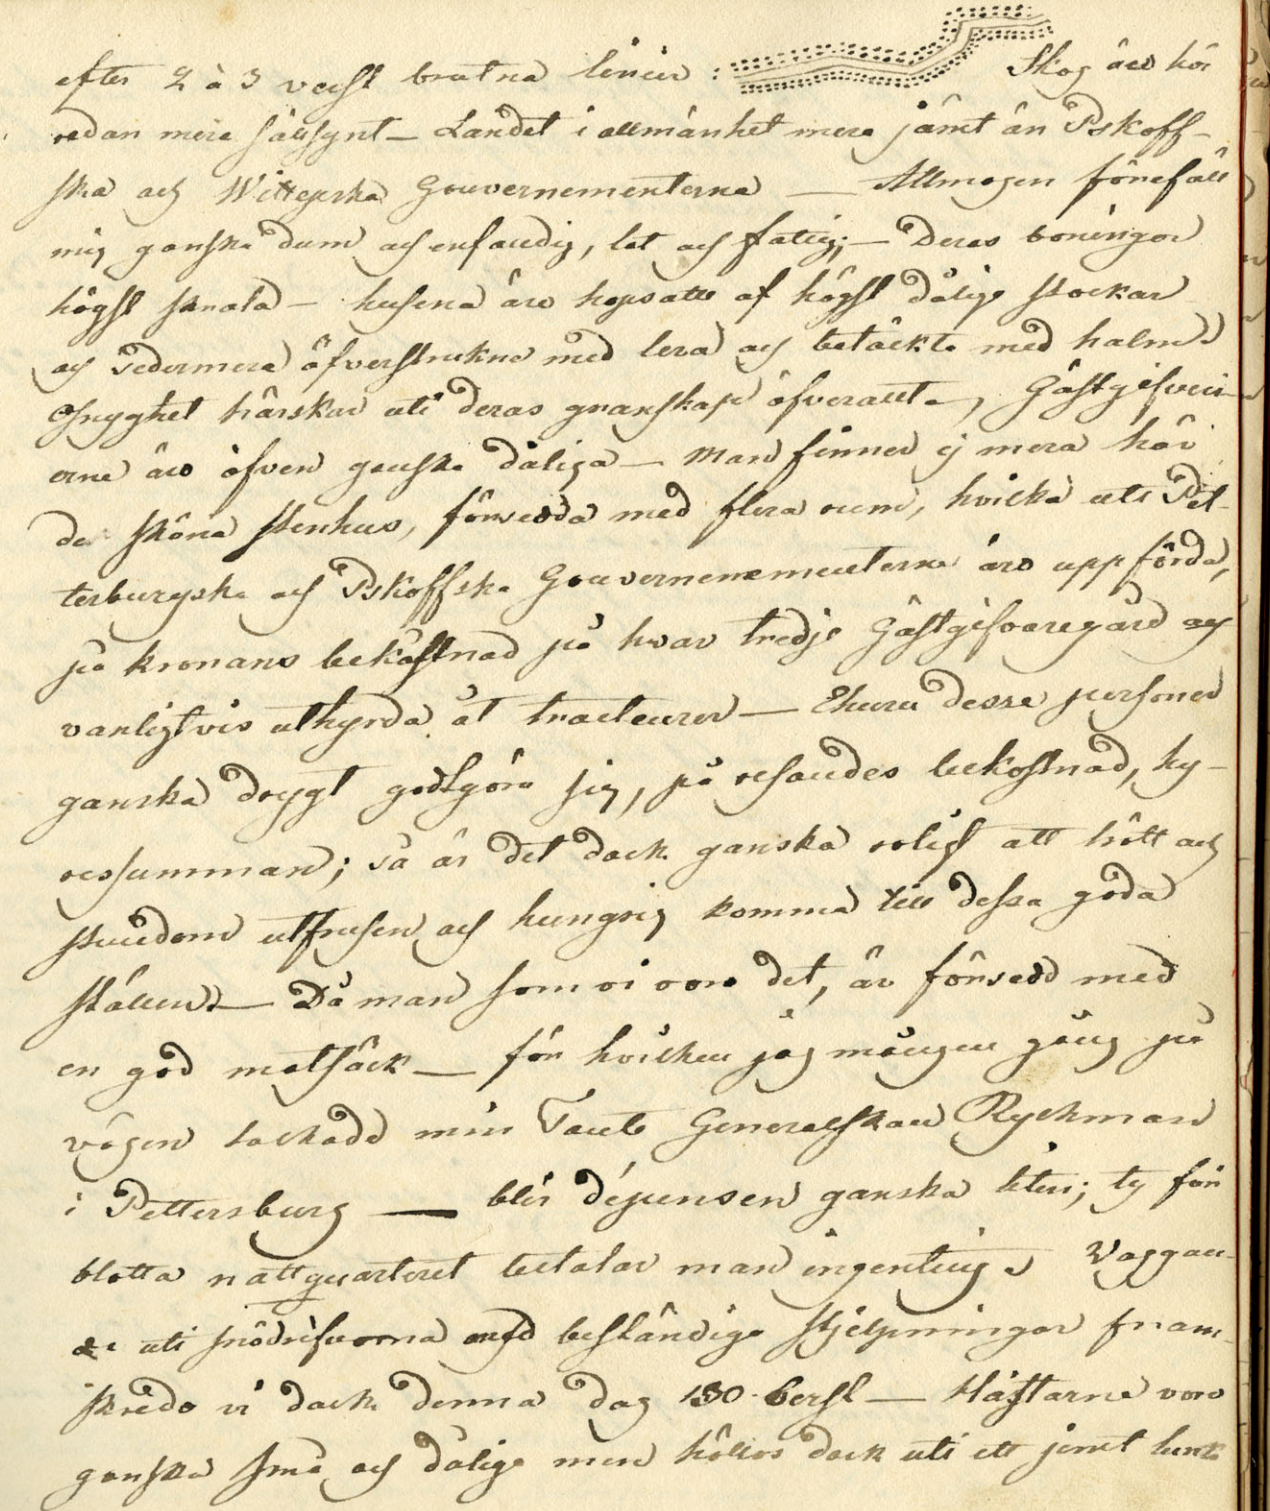 efter 2 à 3 verst brutna linier :
Skog äro här
redan mera sällsynt — Landet i allmänhet mera jämt än Pskoff-
ska och Wittepska Gouvernementerna — Allmogen föreföll
mig ganska dum och enfaldig, lat och fattig; — Deras boningar
högst skrala — husena äro hopsatte af högst dålige stockar
och sedermera öfverstrukne med lera och betäckte med halm.
Osnyghet härskar uti deras granskap öfverallt —, Gästgifveri-
erne äro äfven ganska dåliga — man finner ej mera här
de sköna stenhus, försedda med flera rum, hvilka uti Pet-
terburgska och Pskoffska Gouvernenementerna äro uppförda,
på kronans bekåstnad på hvar tredje Gästgifvaregård och
vanligtvis uthyrda åt tracteurer — Ehuru desse personer
ganska drygt godtgöra sig, på resandes bekostnad, hy-
ressumman; så är det dock ganska roligt att trött och
stundom utfrusen och hungrig komma till dessa goda
ställen. — Då man som vi voro det, är försedd med
en god matsäck — för hvilken jag mången gång på
vägen tackade min Tante Generalskan Ryckman
i Pettersburg — blir dépensen ganska liten; ty för
blotta nattquarteret betalar man ingenting. Vaggan-
de uti snödrifvorna med beständige stjelpningar fram-
skredo vi dock denna dag 130 verst — Hästarne voro
ganska små och dålige men höllos dock uti ett jemt lunk